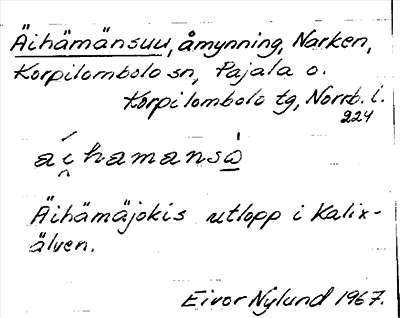 Äihämänsuu, åmynning, Narken,
Korpilombolo sn, Pajala o.
Korpilombolo tg, Norrb. l.
224
Äihämäjokis utlopp i Kalix-
älven.
Eivor Nylund 1967.